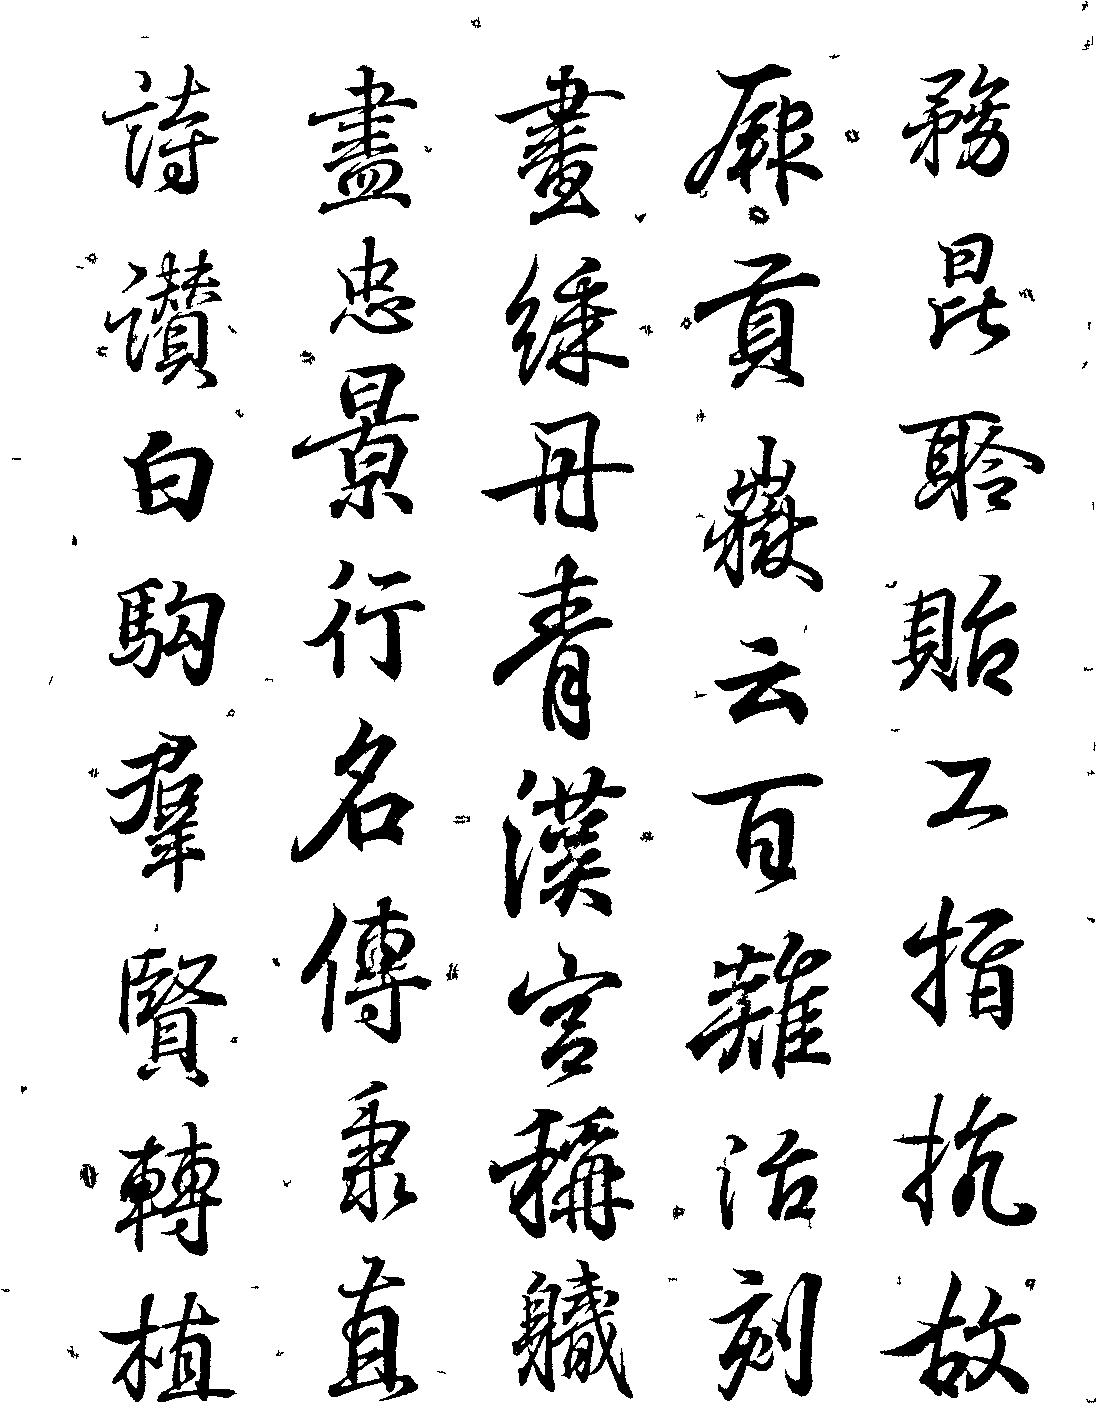 務昆聆貽工指抗故
厥貢嶽云百難治刻
畫綵丹青漢宮稱軄
盡忠景行名傳秉直
詩讚白駒羣賢轉植